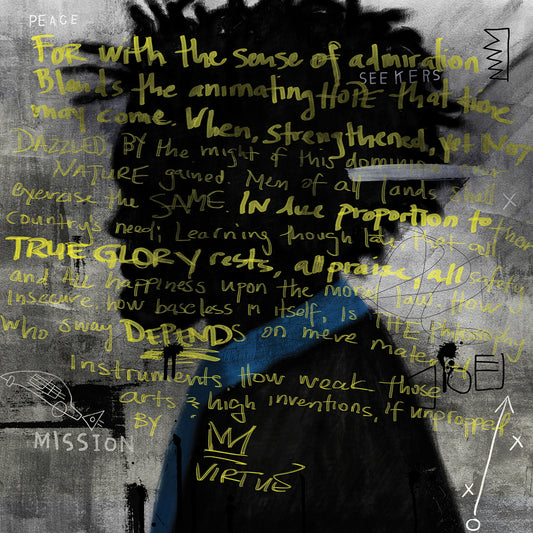 PEACE
For with the sense of admiration
SEEKERS
Blends the animating HOPE that time
may come. When, strengthened, yet Not
DAZZLED BY the might of this dominion over
NATURE gained Men of all lands shall
exercise the SAME IN due proportion to their
Country's need; Learning though late that all
TRUE GLORY rests, all praise, all safety
and all happiness upon the moral law. How
Insecure, how baseless in itself, IS THE Philosophy
Who sway DEPENDS on mere material
Instruments. How weak those
arts & high inventions, if unpropped
BY
VIRTUE
MISSION
X
X
X